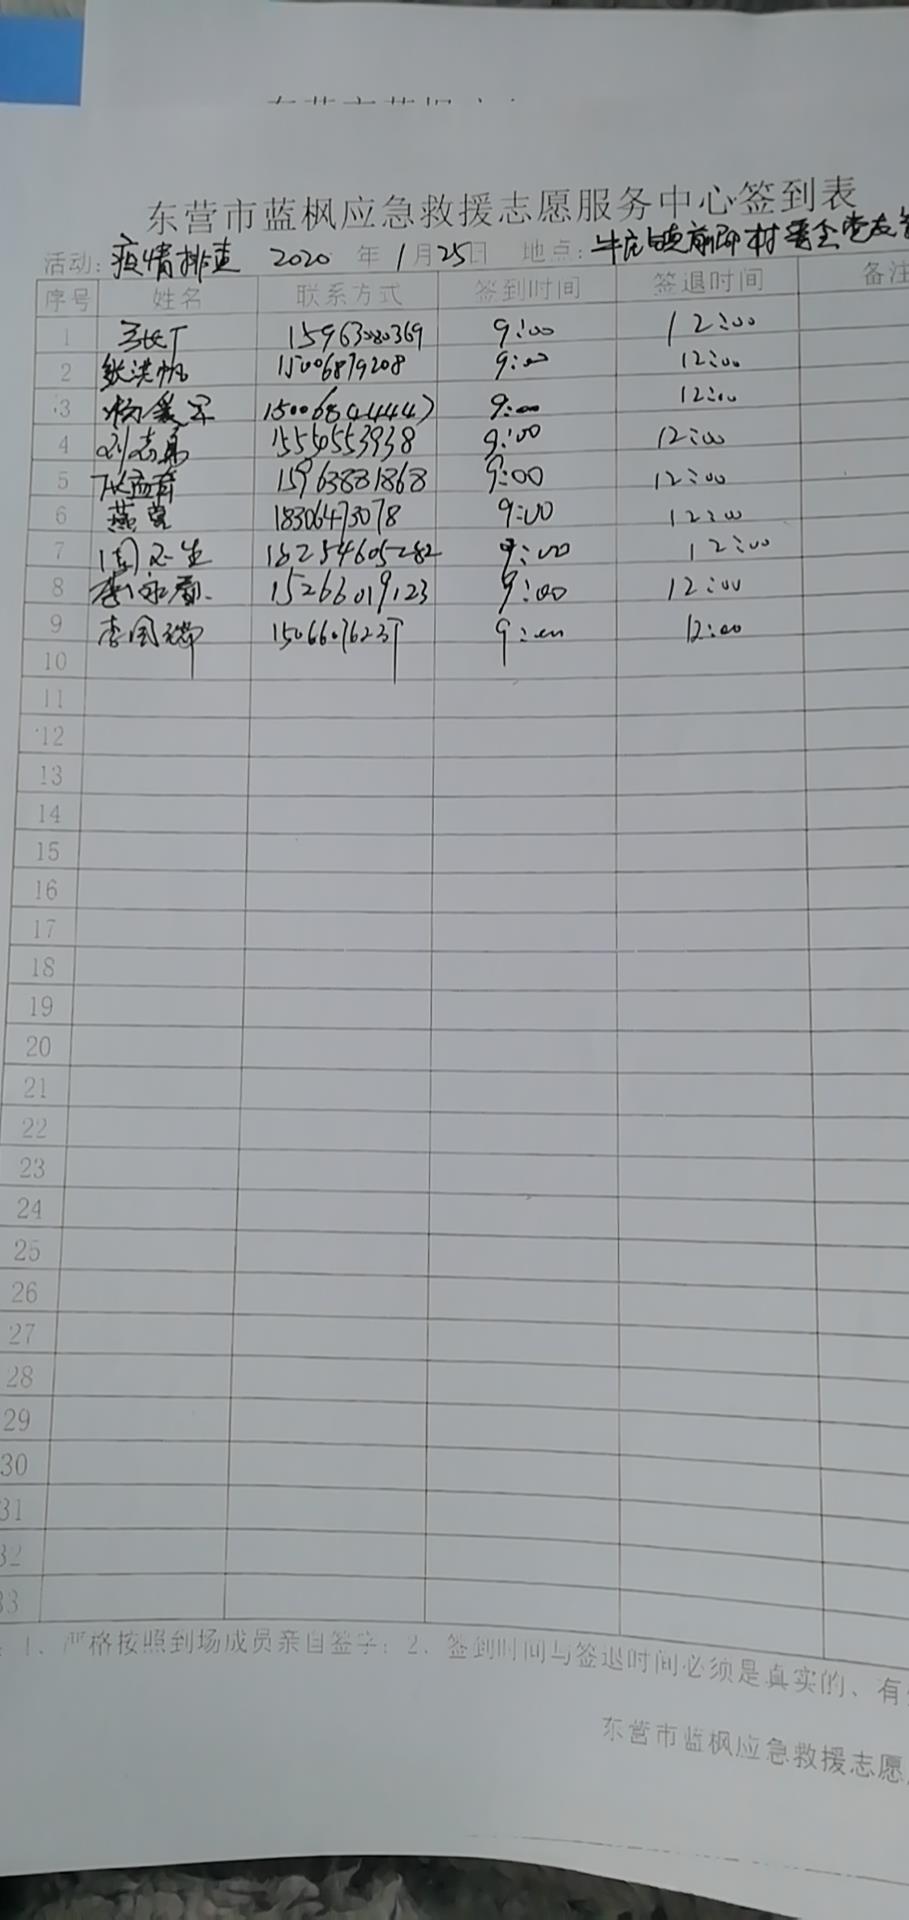 东营市蓝枫应急救援志愿服务中心签到表
活动：疫情排查 2020 年 1月25日 地点：牛庄镇前邵村
序号 姓名 联系方式 签到时间 签退时间 备注
1 15963080369 9:00 12:00
2 张洪帆 15006879208 9:00 12:00
3 杨爱军 15006844447 9:00 12:00
4 刘志勇 15550553938 9:00 12:00
5 15963881868 9:00 12:00
6 燕 18306473078 9:00 12:00
7 周 生 18254605282 9:00 12:00
8 李永 15266019123 9:00 12:00
9 李国瑞 9:00 12:00
10
11
12
13
14
15
16
17
18
19
20
21
22
23
24
25
26
27
28
29
30
31
32
33
1、严格按照到场成员亲自签字；2、签到时间与签退时间必须是真实的、有
东营市蓝枫应急救援志愿